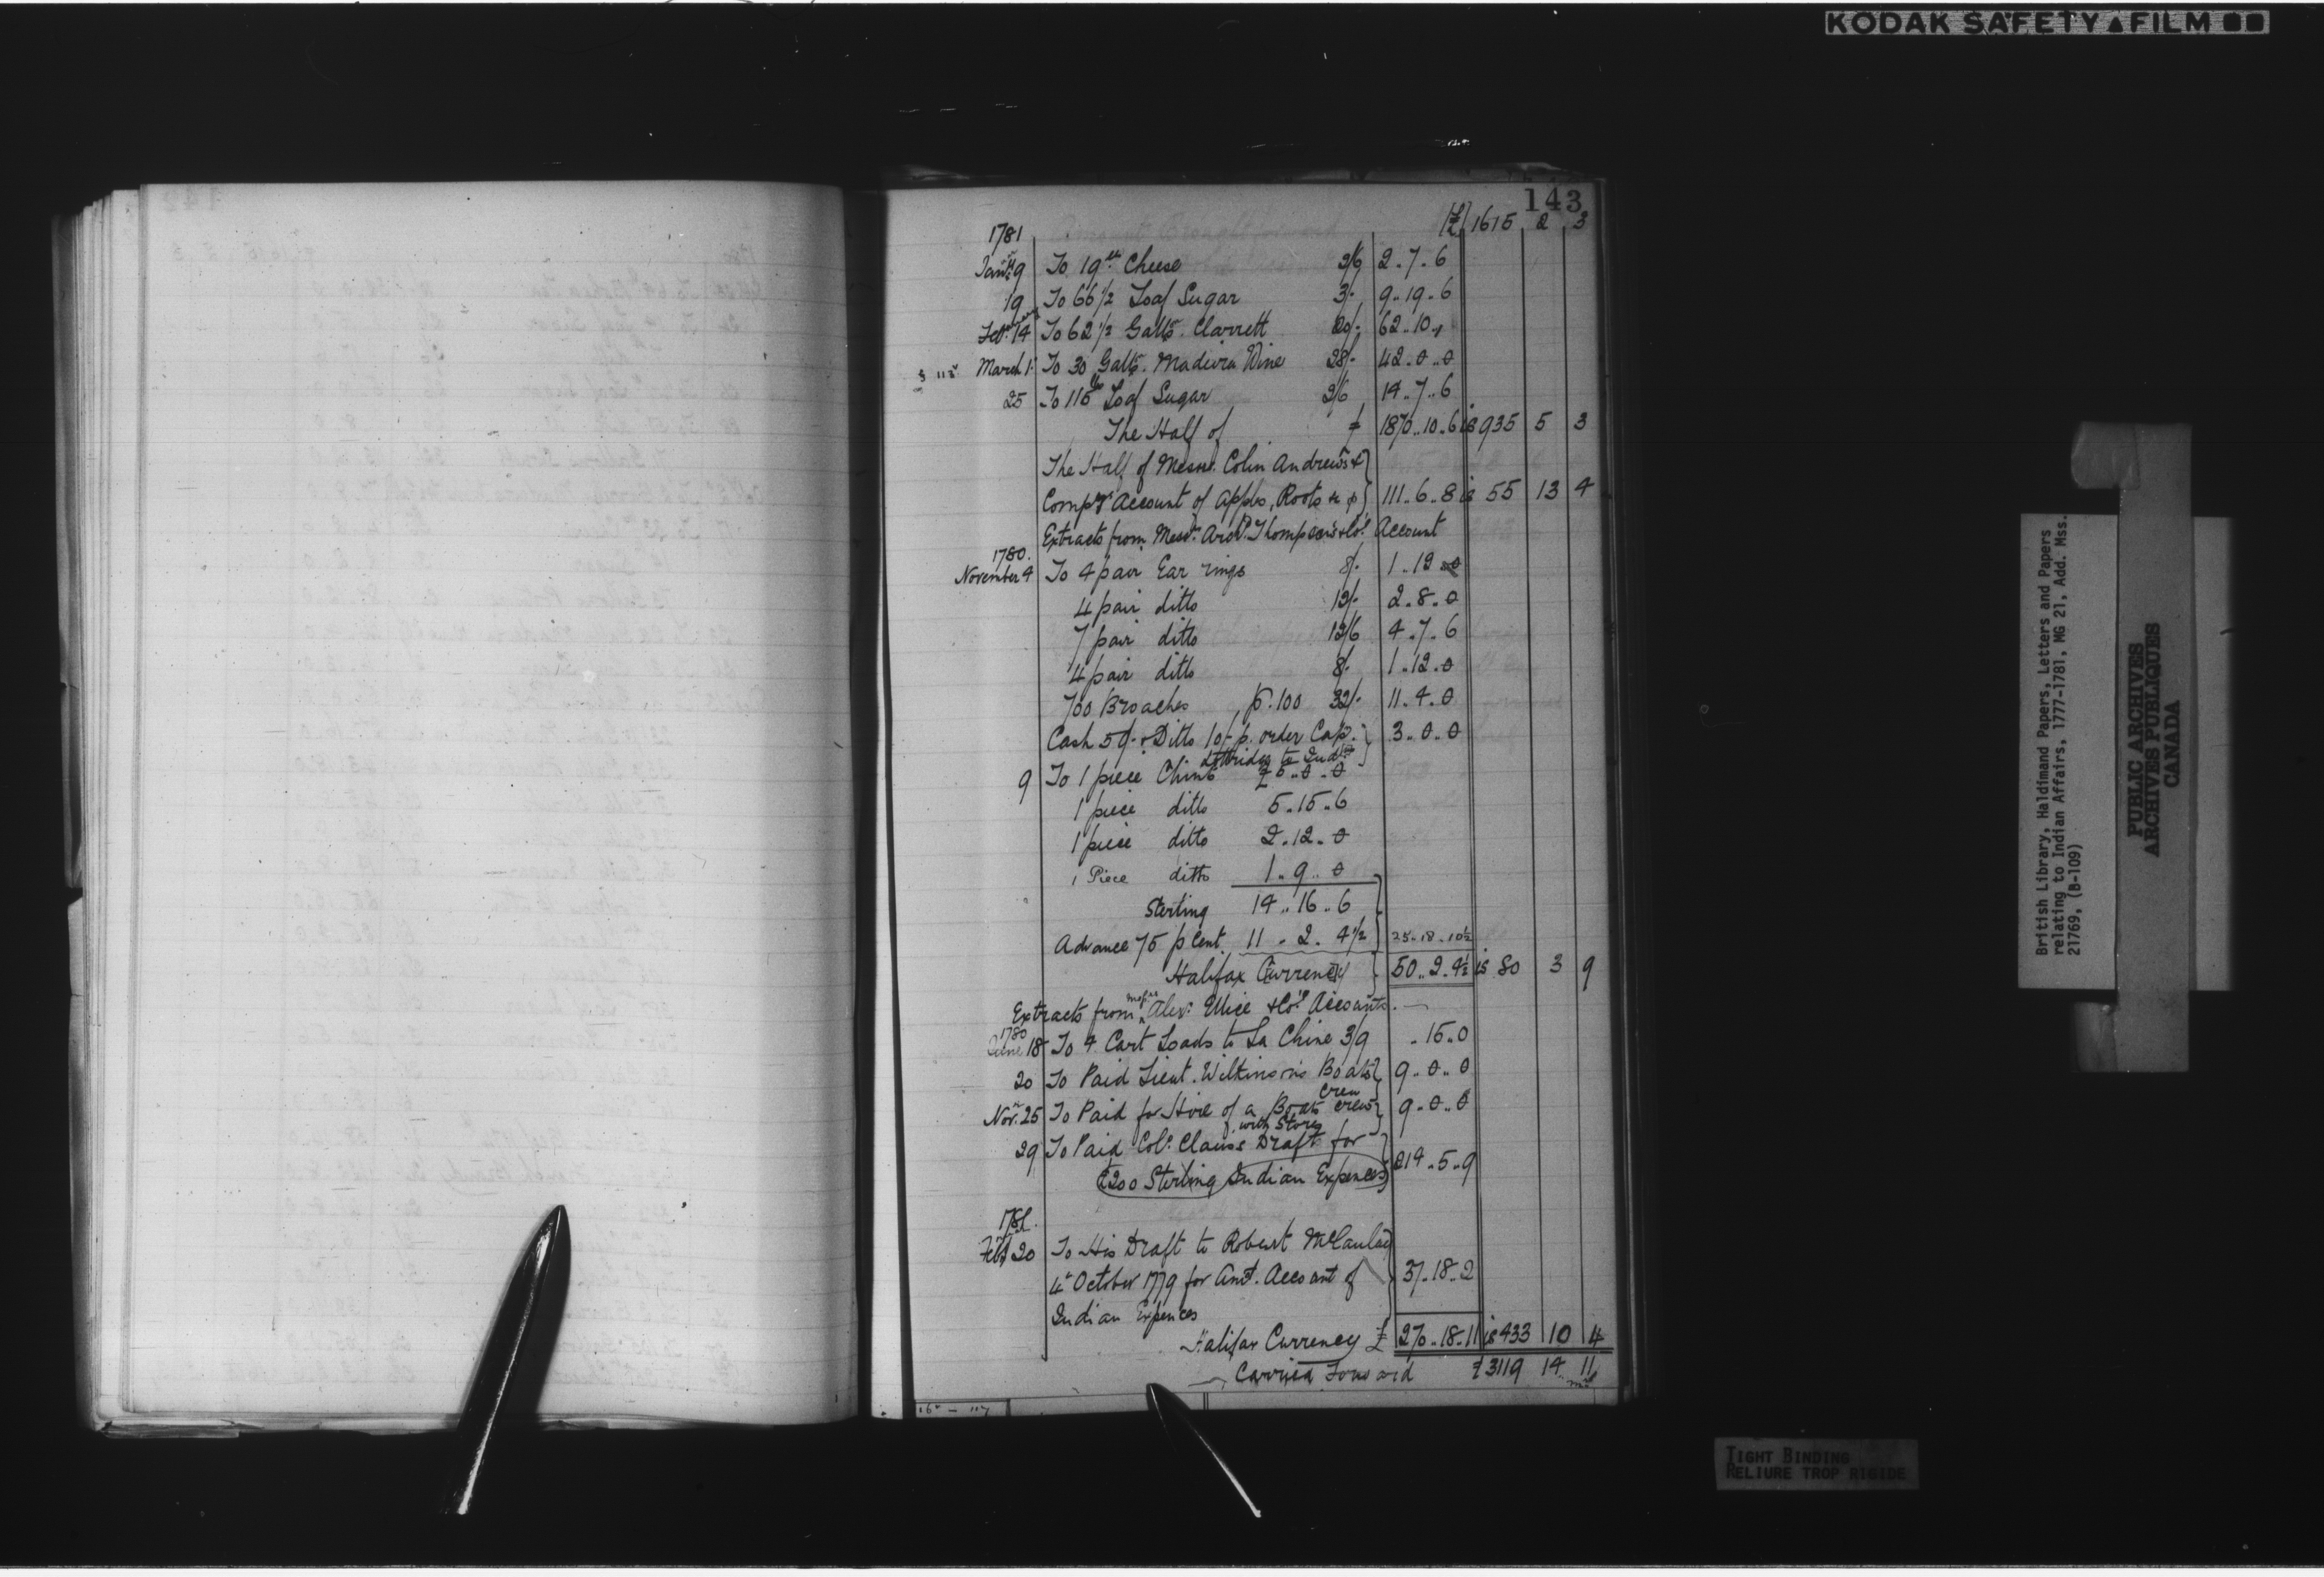 KODAK SAFETY FILM
143
£ 1615 2 3
1781
Jany 9 To 19 lb Cheese 2/6 2..7..6
19 To 66 1/2 Loaf Sugar 3/- 9..19..6
Feby 14 To 62 1/2 Galls. Clarrett 20/- 62..10..
March 1 To 30 Galls. Madeira Wine 28/- 42..0..0
25 To 115 lb Loaf Sugar 2/6 14..7..6
The Half of £ 1870..10..6 is 935 5 3
The Half of Messrs. Colin Andrews &
Compy's Account of Apples, Roots &c 111..6..8 is 55 13 4
Extracts from Messrs. Archd. Thompson's & Co's Account
1780.
November 4 To 4 pair Ear rings 8/- 1..12..0
4 pair ditto 12/- 2..8..0
7 pair ditto 12/6 4..7..6
4 pair ditto 8/- 1..12..0
700 Broaches p. 100 32/- 11..4..0
Cash 50/- & Ditto 10/- p. order Cap. 3..0..0
Lottridge to Inds
9 To 1 piece Chints £5..0..0
1 piece ditto 5..15..6
1 piece ditto 2..12..0
1 Piece ditto 1..9..0
Sterling 14..16..6
Advance 75 p Cent 11..2..4 1/2 25..18..10 1/2
Halifax Currency 50..2..4 1/2 is 80 3 9
Extracts from Messrs Alexr. Ellice & Co's Accounts.
1780
June 18 To 4 Cart Loads to La Chine 3/9 ..15..0
20 To Paid Lieut. Wilkinson's Boats 9..0..0
Crew
Novr. 25 To Paid for Hire of a Boats Crew 9..0..0
with Stores
29 To Paid Col. Claus's Draft for
£200 Sterling Indian Expences 214..5..9
1781.
Feby 20 To His Draft to Robert McCaulay
4 October 1779 for Amt. Account of 37..18..2
Indian Expences
Halifax Currency £ 270..18..11 is 433 10 4
Carried Forward £3119 14 11
British Library, Haldimand Papers, Letters and Papers
relating to Indian Affairs, 1777-1781, MG 21, Add. Mss.
21769, (B-109)
PUBLIC ARCHIVES
ARCHIVES PUBLIQUES
CANADA
TIGHT BINDING
RELIURE TROP RIGIDE